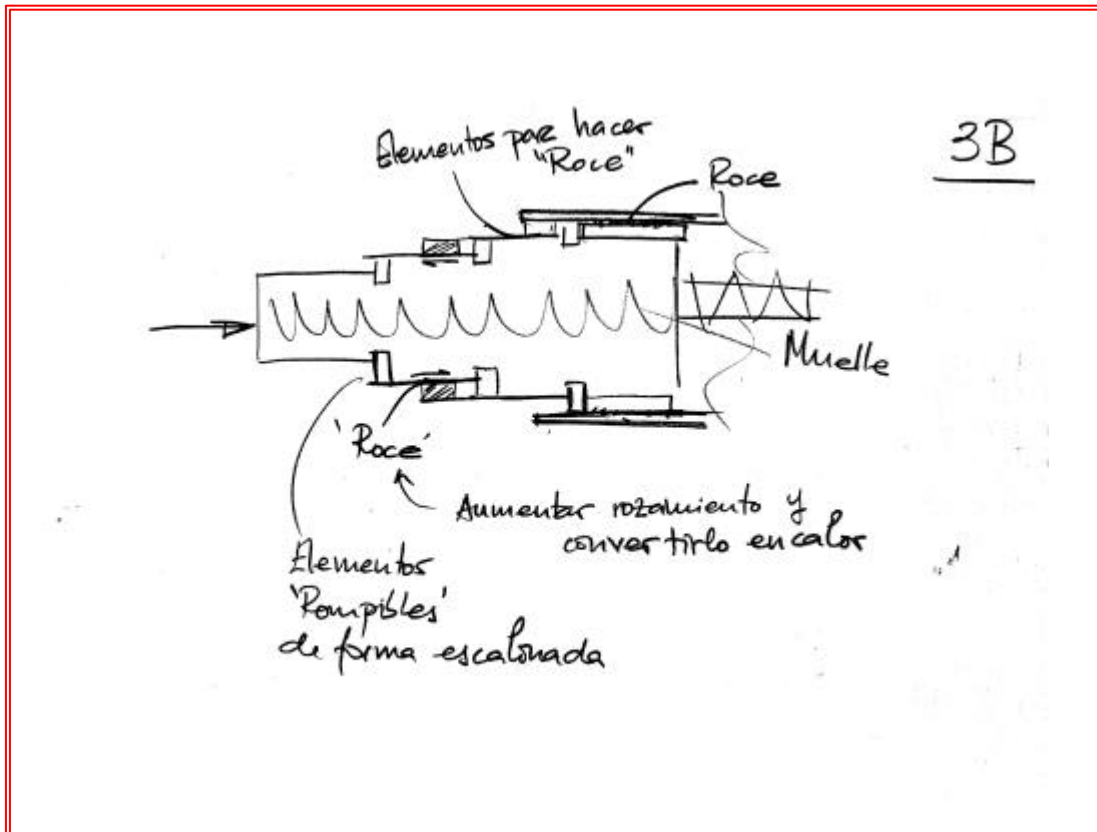 3B
Elementos para hacer
"Roce"
Roce
Muelle
'Roce'
Aumentar rozamiento y
convertirlo en calor
Elementos
'Rompibles'
de forma escalonada